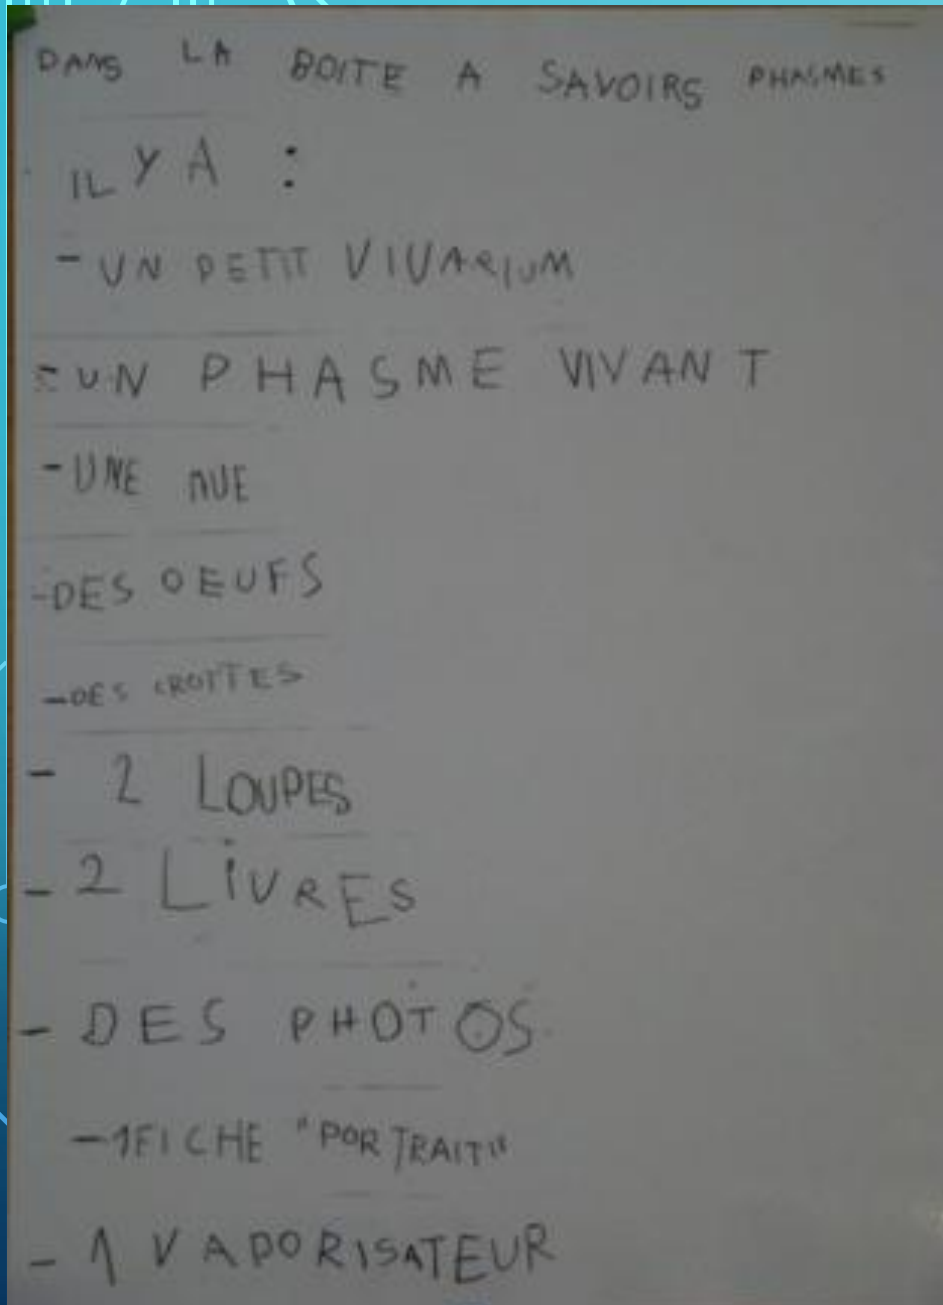 DANS LA BOITE A SAVOIRS PHASMES
IL Y A :
- UN PETIT VIVARIUM
- UN PHASME VIVANT
- UNE MUE
- DES OEUFS
- DES CROTTES
- 2 LOUPES
- 2 LIVRES
- DES PHOTOS
- 1 FICHE "PORTRAIT"
- 1 VAPORISATEUR